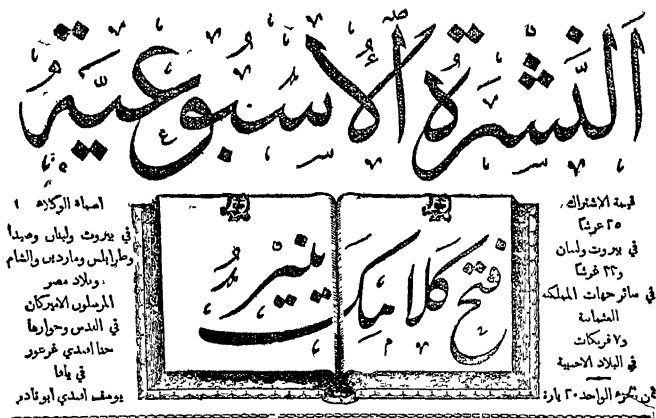 النشرة الاسبوعية
قيمة الاشتراك
٢٥ غرشا
في بيروت ولبنان
و٣٢ غرشا
في سائر جهات المملكة
العثمانية
و٧ فرنكات
في البلاد الاجنبية
ثمن الجزء الواحد ٢٠ بارة
فتح كلامك ينير
اسماء الوكلاء
في بيروت ولبنان وصيدا
وطرابلس وماردين والشام
وبلاد مصر
المرسلون الاميركان
في القدس وجوارها
حنا افندي
في يافا
يوسف افندي ابو نادر